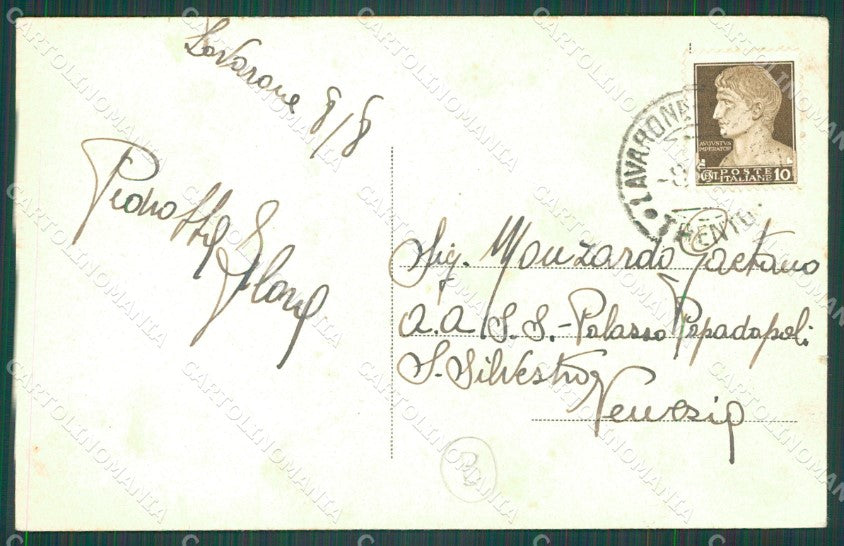 Lavarone 8/8
Pedrotti
AVGVSTVS
IMPERATOR
POSTE
CENT. ITALIANE 10
LAVARONE
TRENTO
Sig. Monzardo Gaetano
A.A S.S.- Palasso Papadopoli
S. Silvestro
Venezia
CARTOLINOMANIA